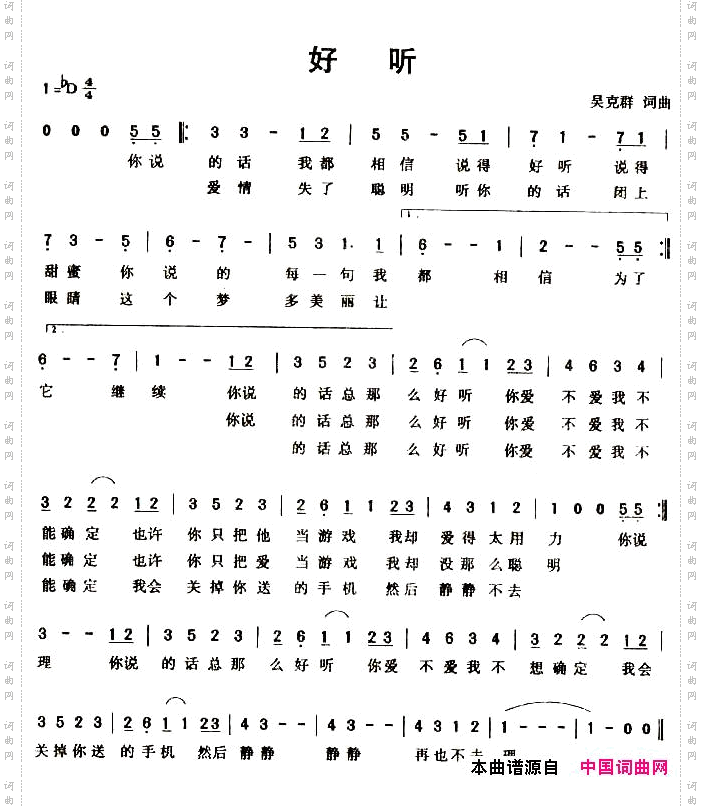 好 听
1=♭D 4/4
吴克群 词曲
0 0 0 5 5 ‖: 3 3 - 1 2 | 5 5 - 5 1 | 7 1 - 7 1 |
你说 的话 我都 相信 说得 好听 说得
爱情 失了 聪明 听你 的话 闭上
1.
7 3 - 5 | 6 - 7 - | 5 3 1. 1 | 6 - - 1 | 2 - - 5 5 :‖
甜蜜 你 说 的 每一句我 都 相 信 为了
眼睛 这 个 梦 多美丽让
2.
6 - - 7 | 1 - - 1 2 | 3 5 2 3 | 2 6 1 1 2 3 | 4 6 3 4 |
它 继 续 你说 的话总那 么好听 你爱 不爱我不
你说 的话总那 么好听 你爱 不爱我不
的话总那 么好听 你爱 不爱我不
3 2 2 2 1 2 | 3 5 2 3 | 2 6 1 1 2 3 | 4 3 1 2 | 1 0 0 5 5 :‖
能确定 也许 你只把他 当游戏 我却 爱得太用 力 你说
能确定 也许 你只把爱 当游戏 我却 没那么聪 明
能确定 我会 关掉你送 的手机 然后 静静不去
3 - - 1 2 | 3 5 2 3 | 2 6 1 1 2 3 | 4 6 3 4 | 3 2 2 2 1 2 |
理 你说 的话总那 么好听 你爱 不爱我不 想确定 我会
3 5 2 3 | 2 6 1 1 2 3 | 4 3 - - | 4 3 - - | 4 3 1 2 | 1 - - - | 1 0 0 0 ‖
关掉你送 的手机 然后 静静 静静 再也不去 理
本曲谱源自 中国词曲网
词曲网